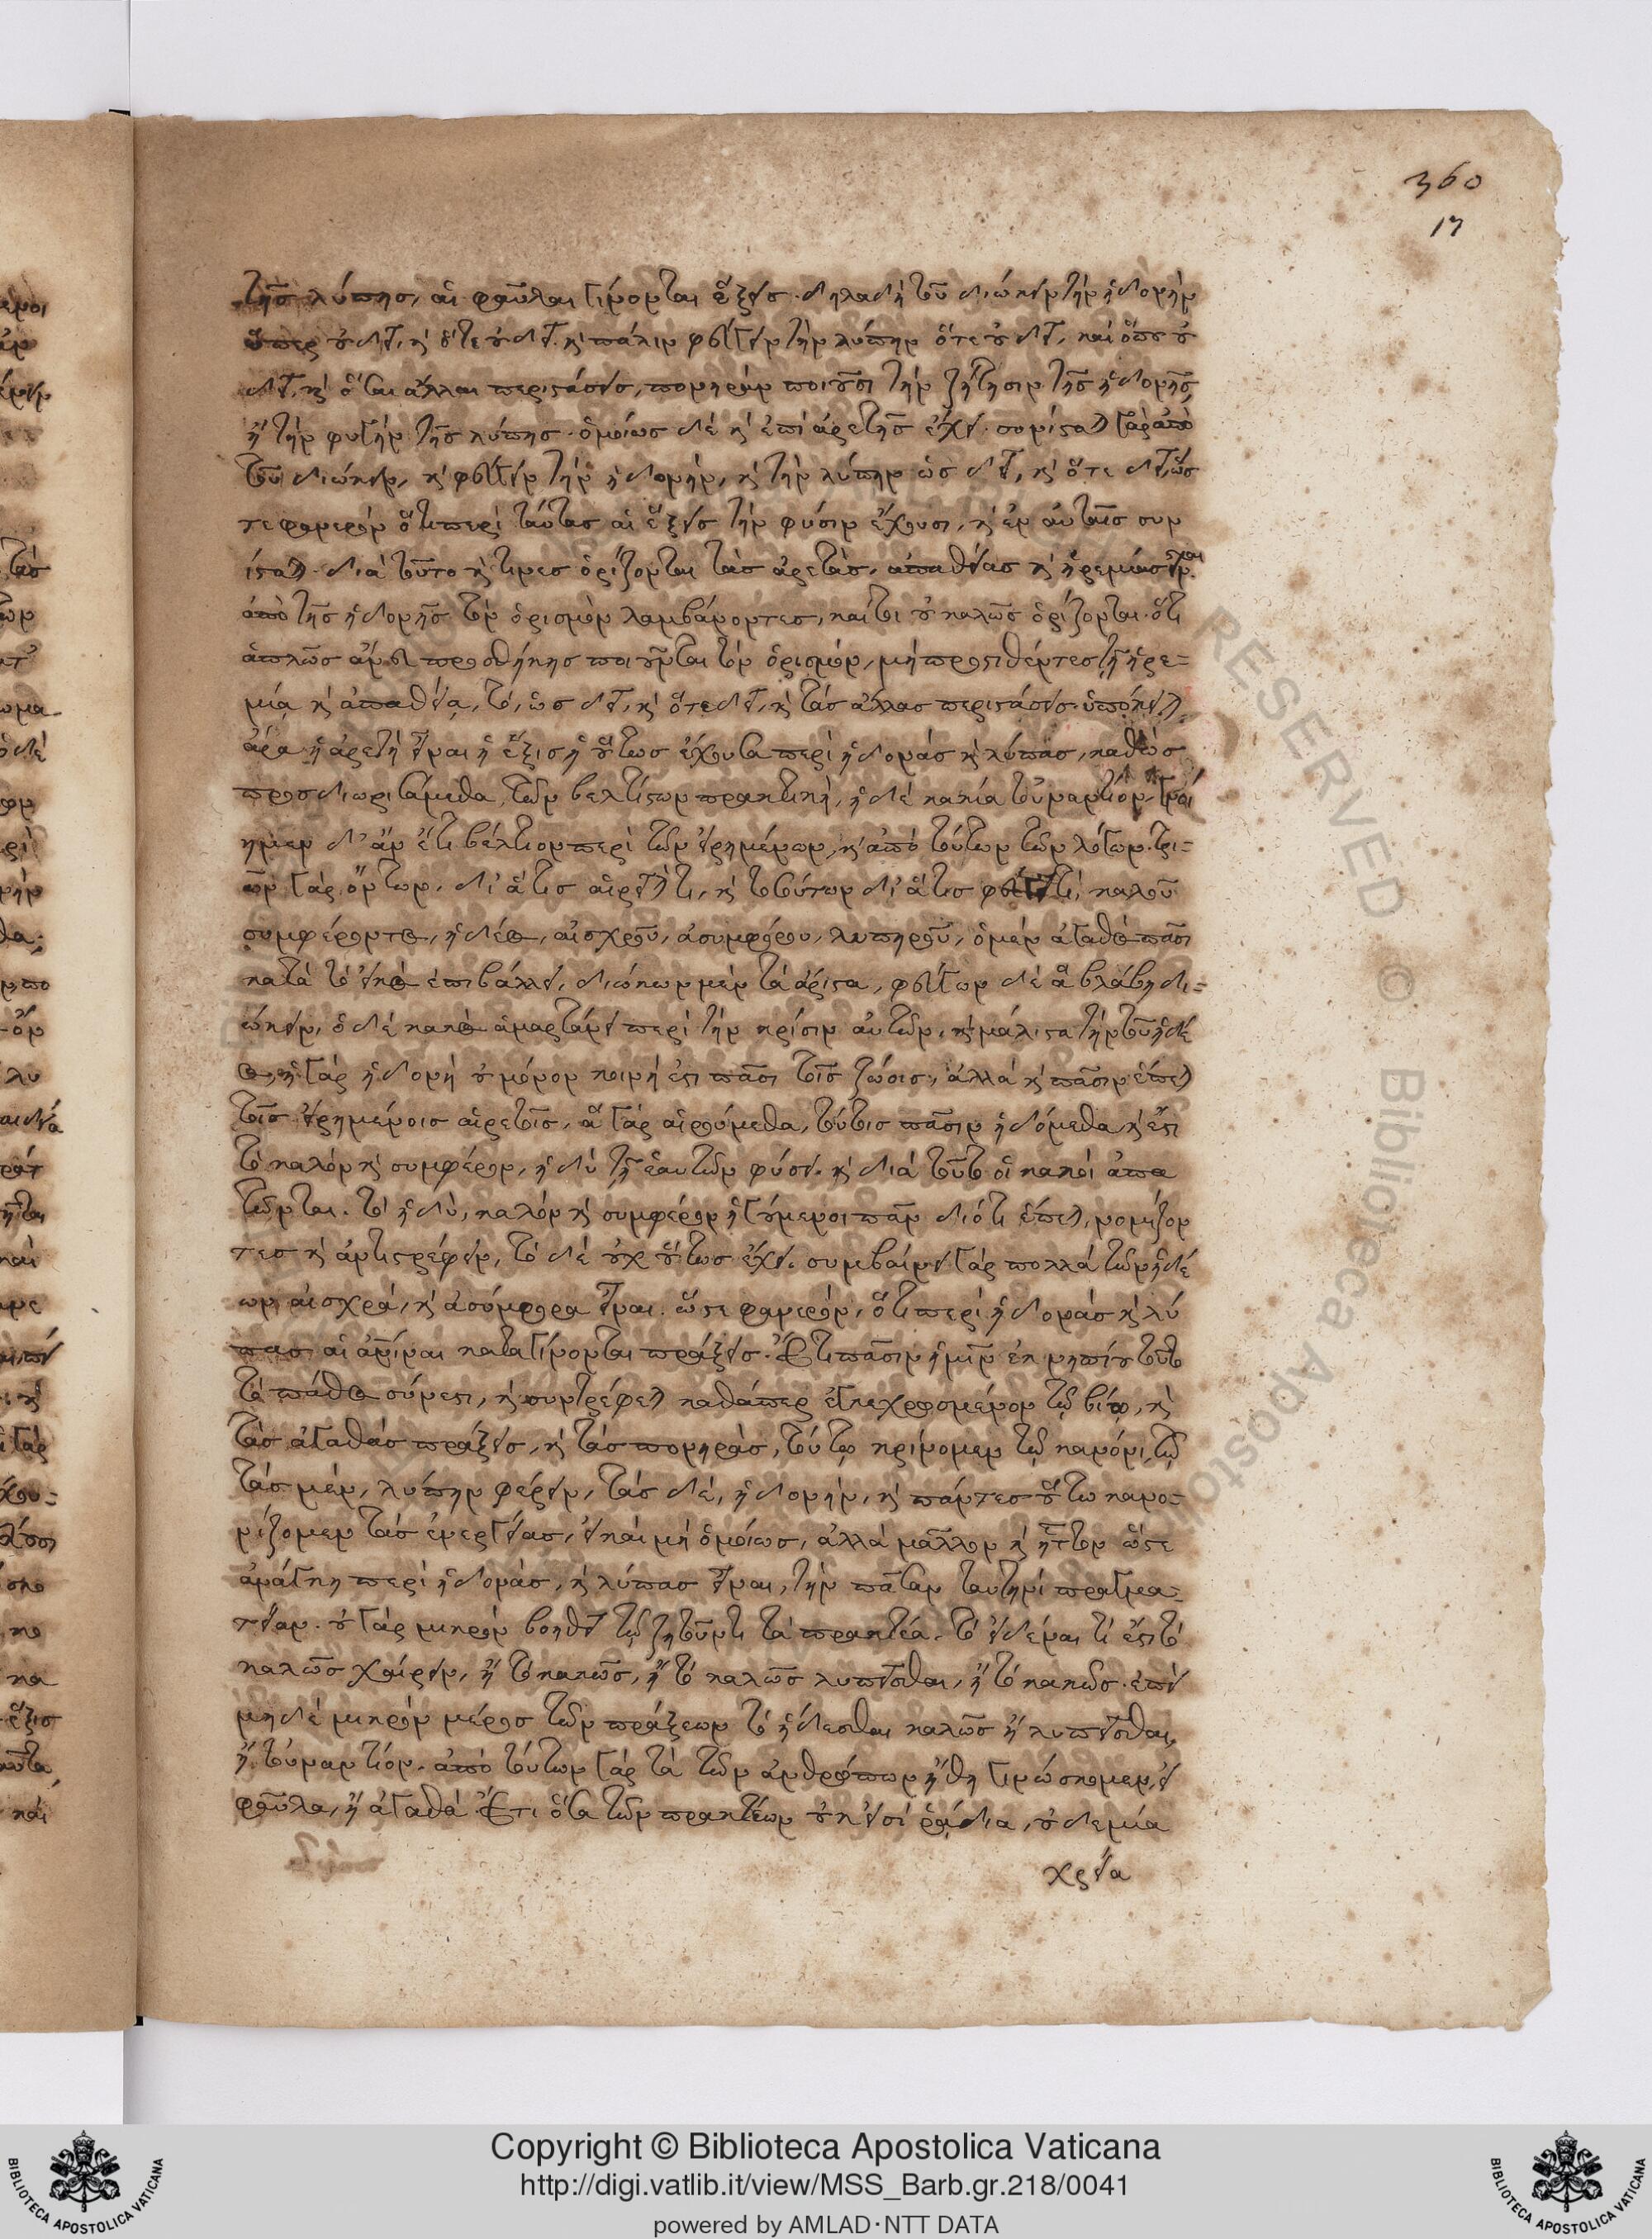 360
17
τῆς λύπης, αἱ φαῦλαι γίνονται ἕξεις. δηλαδὴ τοῦ διώκειν τὴν ἡδονὴν
ὅπερ οὐ δεῖ, κ ὅτε οὐ δεῖ. κ πάλιν φεύγειν τὴν λύπην ὅτε οὐ δεῖ, καὶ ὅπου οὐ
δεῖ, κ ὅσαι ἄλλαι περιστάσεις, πονηρὰν ποιοῦσι τὴν ζήτησιν τῆς ἡδονῆς,
ἢ τὴν φυγὴν τῆς λύπης. ὁμοίως δὲ κ ἐπὶ ἀρετῆς ἔχει. συνίσταται γὰρ ἀπὸ
τοῦ διώκειν, κ φεύγειν τὴν ἡδονὴν, κ τὴν λύπην ὡς δεῖ, κ ὅτε δεῖ, ὥσ
τε φανερὸν ὅτι περὶ ταύτας αἱ ἕξεις τὴν φύσιν ἔχουσι, κ ἐν αὐταῖς συν
ίσταται. διὰ τοῦτο κ τινες ὁρίζονται τὰς ἀρετὰς, ἀπαθείας κ ἠρεμίας
ἀπὸ τῆς ἡδονῆς τὸν ὁρισμὸν λαμβάνοντες, καίτοι οὐ καλῶς ὁρίζονται. ὅτι
ἁπλῶς ἄνευ προσθήκης ποιοῦνται τὸν ὁρισμὸν, μὴ προστιθέντες τῇ ἠρε=
μίᾳ κ ἀπαθείᾳ, τό, ὡς δεῖ, κ ὅτε δεῖ, κ τὰς ἄλλας περιστάσεις. ὑπόκειται
ἄρα ἡ ἀρετὴ εἶναι ἡ ἕξις ἡ οὕτως ἔχουσα περὶ ἡδονὰς κ λύπας, καθὼς
προσδιωρισάμεθα, τῶν βελτίστων πρακτικὴ, ἡ δὲ κακία τοὐναντίον.
ημεν δ' ἂν ἔτι βέλτιον περὶ τῶν εἰρημένων, κ ἀπὸ τούτων τῶν λόγων. τρι=
ῶν γὰρ ὄντων, δι' ἅ τις αἱρεῖταί τι, κ τοσούτων δι' ἅ τις φεύγει τι, καλοῦ
συμφέροντος, ἡδέος, αἰσχροῦ, ἀσυμφόρου, λυπηροῦ, ὁ μὲν ἀγαθὸς πᾶσι
κατὰ τὸ εἰκὸς ἐπιβάλλει, διώκων μὲν τὰ ἄριστα, φεύγων δὲ ἃ βλάβη δι=
ώκειν, ὁ δὲ κακὸς ἁμαρτάνει περὶ τὴν κρίσιν αὐτῶν, κ μάλιστα τὴν τοῦ ἡδέ
ος, ἡ γὰρ ἡδονὴ οὐ μόνον κοινή ἐστι πᾶσι τοῖς ζώοις, ἀλλὰ κ πᾶσιν ἕπεται
τοῖς εἰρημένοις αἱρετοῖς, ἃ γὰρ αἱρούμεθα, τούτοις πᾶσιν ἡδόμεθα, κ ἔστι
τὸ καλὸν κ συμφέρον, ἡδὺ τῇ ἑαυτῶν φύσει. κ διὰ τοῦτο οἱ κακοὶ ἀπα
τῶνται. τὸ ἡδὺ, καλὸν κ συμφέρον ἡγούμενοι πᾶν διότι ἕπεται, νομίζον
τες κ ἀντιστρέφειν, τὸ δὲ οὐχ οὕτως ἔχει. συμβαίνει γὰρ πολλὰ τῶν ἡδέ
ων αἰσχρὰ, κ ἀσύμφορα εἶναι. ὥστε φανερὸν, ὅτι περὶ ἡδονὰς κ λύ
πας αἱ καταγίνονται πράξεις. Ἔτι πᾶσιν ἡμῖν ἐκ νηπίου τοῦτο
τὸ πάθος σύνεστι, κ συντρέφεται καθάπερ ἐγκεχρωσμένον τῷ βίῳ, κ
τὰς ἀγαθὰς πράξεις, κ τὰς πονηρὰς, τούτῳ κρίνομεν τῷ κανόνι, τῷ
τὰς μὲν, λύπην φέρειν, τὰς δὲ, ἡδονὴν, κ πάντες οὕτω κανο=
νίζομεν τὰς ἐνεργείας, εἰ καὶ μὴ ὁμοίως, ἀλλὰ μᾶλλον κ ἧττον ὥστε
ἀνάγκη περὶ ἡδονὰς, κ λύπας εἶναι, τὴν πᾶσαν ταυτηνὶ πραγμα=
τείαν. οὐ γὰρ μικρὸν βοηθεῖ τῷ ζητοῦντι τὰ πρακτέα. τὸ εἰδέναι τί ἐστι τὸ
καλῶς χαίρειν, ἢ τὸ κακῶς, ἢ τὸ καλῶς λυπεῖσθαι, ἢ τὸ κακῶς. ἐπεὶ
μηδὲ μικρὸν μέρος τῶν πράξεων τὸ ἥδεσθαι καλῶς ἢ λυπεῖσθαι,
ἢ τοὐναντίον. ἀπὸ τούτων γὰρ τὰ τῶν ἀνθρώπων ἤθη γινώσκομεν, εἰ
φαῦλα, ἢ ἀγαθὰ. Ἔτι ὅσα τῶν πρακτέων οὐκ εἰσὶ ῥᾴδια, οὐδεμία
χρεία
Copyright © Biblioteca Apostolica Vaticana
http://digi.vatlib.it/view/MSS_Barb.gr.218/0041
powered by AMLAD·NTT DATA